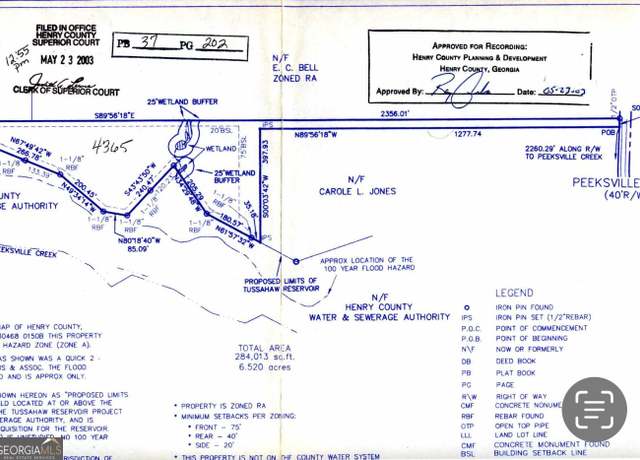 FILED IN OFFICE
HENRY COUNTY
SUPERIOR COURT
12:55 pm
MAY 23 2003
CLERK OF SUPERIOR COURT
PB 37 PG 202
N/F
E. C. BELL
ZONED RA
APPROVED FOR RECORDING:
HENRY COUNTY PLANNING & DEVELOPMENT
HENRY COUNTY, GEORGIA
Approved By: Date:
25'WETLAND BUFFER
S89°56'18"E
2356.01'
1/2"OTP
20'BSL
N89°56'18"W
1277.74
POB
N67°49'42"W
266.78'
133.39
4365
WETLAND
75'BSL
397.93
2260.29' ALONG R/W
TO PEEKSVILLE CREEK
1-1/8"
RBF
1-1/8"
RBF
25'WETLAND
BUFFER
N/F
CAROLE L. JONES
PEEKSVILLE
(40'R/W
200.45'
N49°34'14"W
S43°43'50"W
205.29
S00°03'42"W
COUNTY
AUTHORITY
1-1/8"
RBF
1-1/8"
RBF
180.57'
N61°57'32"W
35.18'
IPS
N80°18'40"W
85.09'
1-1/8"
RBF
PEEKSVILLE CREEK
APPROX LOCATION OF THE
100 YEAR FLOOD HAZARD
PROPOSED LIMITS OF
TUSSAHAW RESERVOIR
N/F
HENRY COUNTY
WATER & SEWERAGE AUTHORITY
LEGEND
o IRON PIN FOUND
IPS IRON PIN SET (1/2"REBAR)
P.O.C. POINT OF COMMENCEMENT
P.O.B. POINT OF BEGINNING
N\F NOW OR FORMERLY
DB DEED BOOK
PB PLAT BOOK
PG PAGE
R\W RIGHT OF WAY
CMF CONCRETE MONUME
RBF REBAR FOUND
OTP OPEN TOP PIPE
LLL LAND LOT LINE
CMF CONCRETE MONUMENT FOUND
BSL BUILDING SETBACK LINE
MAP OF HENRY COUNTY,
30468 0150B THIS PROPERTY
HAZARD ZONE (ZONE A).
AS SHOWN WAS A QUICK 2 -
S & ASSOC. THE FLOOD
AND IS APPROX ONLY.
SHOWN HEREON AS "PROPOSED LIMITS
LD LOCATED AT OR ABOVE THE
THE TUSSAHAW RESERVOIR PROJECT
ERAGE AUTHORITY, AND IS
QUISITION FOR THE RESERVOIR.
NO 100 YEAR
TOTAL AREA
284,013 sq.ft.
6.520 acres
* PROPERTY IS ZONED RA
* MINIMUM SETBACKS PER ZONING:
* FRONT - 75'
* REAR - 40'
* SIDE - 20'
* THIS PROPERTY IS NOT ON THE COUNTY WATER SYSTEM
GEORGIAMLS